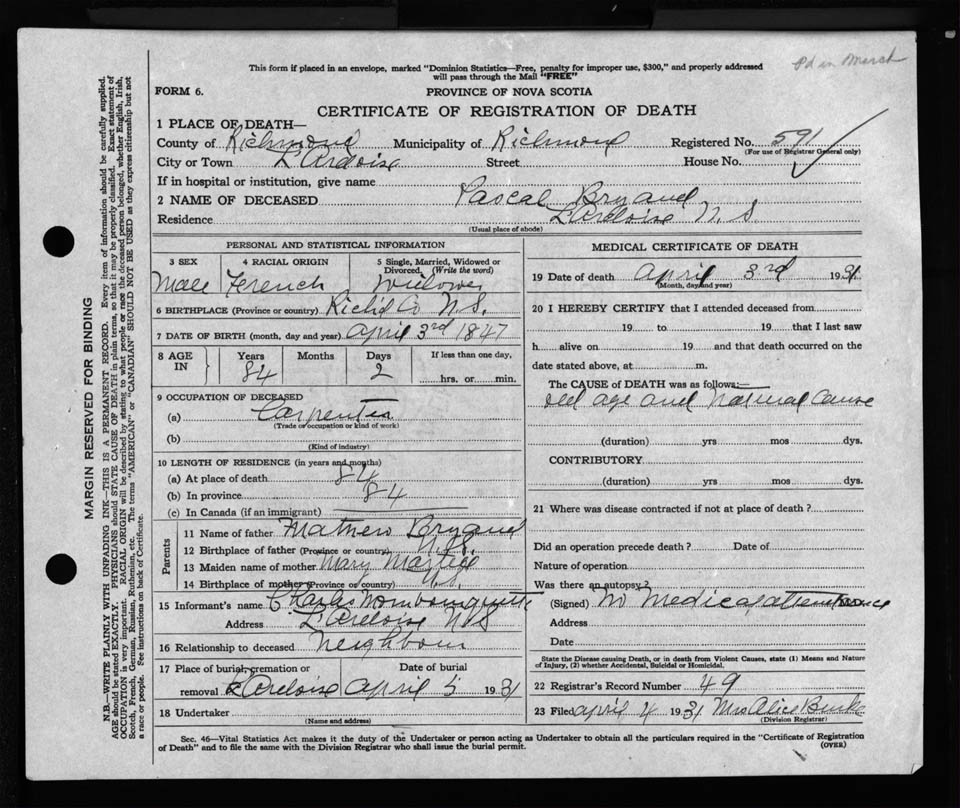 This form if placed in an envelope, marked "Dominion Statistics—Free, penalty for improper use, $300," and properly addressed
will pass through the Mail "FREE"
Pd in March
FORM 6.
PROVINCE OF NOVA SCOTIA
CERTIFICATE OF REGISTRATION OF DEATH
1 PLACE OF DEATH—
County of Richmond Municipality of Richmond Registered No. 591
(For use of Registrar General only)
City or Town L'Ardoise Street House No.
If in hospital or institution, give name
2 NAME OF DECEASED Pascal Bryand
Residence L'Ardoise N.S.
(Usual place of abode)
PERSONAL AND STATISTICAL INFORMATION
3 SEX 4 RACIAL ORIGIN 5 Single, Married, Widowed or
Divorced. (Write the word)
Male French Widower
6 BIRTHPLACE (Province or country) Rich'd Co N.S.
7 DATE OF BIRTH (month, day and year) April 3rd 1847
8 AGE IN Years Months Days If less than one day,
84 2 hrs. or min.
9 OCCUPATION OF DECEASED
(a) Carpenter
(Trade or occupation or kind of work)
(b)
(Kind of industry)
10 LENGTH OF RESIDENCE (in years and months)
(a) At place of death 84
(b) In province 84
(c) In Canada (if an immigrant)
Parents
11 Name of father Bryand
12 Birthplace of father (Province or country) N.S.
13 Maiden name of mother Mary Martell
14 Birthplace of mother (Province or country) N.S.
15 Informant's name Charles Mombourquette
Address L'Ardoise N.S
16 Relationship to deceased Neighbour
17 Place of burial, cremation or Date of burial
removal L'Ardoise April 5 1931
18 Undertaker
(Name and address)
MEDICAL CERTIFICATE OF DEATH
19 Date of death April 3rd 1931
(Month, day and year)
20 I HEREBY CERTIFY that I attended deceased from
19 to 19 that I last saw
h alive on 19 and that death occurred on the
date stated above, at m.
The CAUSE of DEATH was as follows:—
old age and Natural Cause
(duration) yrs mos dys.
CONTRIBUTORY
(duration) yrs mos dys.
21 Where was disease contracted if not at place of death?
Did an operation precede death? Date of
Nature of operation
Was there an autopsy?
(Signed) No Medical attendance M.D.
Address
Date
State the Disease causing Death, or in death from Violent Causes, state (1) Means and Nature
of Injury, (2) whether Accidental, Suicidal or Homicidal.
22 Registrar's Record Number 49
23 Filed April 4 1931 Mrs Alice Burke
(Division Registrar)
Sec. 46—Vital Statistics Act makes it the duty of the Undertaker or person acting as Undertaker to obtain all the particulars required in the "Certificate of Registration
of Death" and to file the same with the Division Registrar who shall issue the burial permit.
(OVER)
MARGIN RESERVED FOR BINDING
N.B.—WRITE PLAINLY WITH UNFADING INK—THIS IS A PERMANENT RECORD. Every item of information should be carefully supplied.
AGE should be stated EXACTLY. PHYSICIANS should STATE CAUSE OF DEATH in plain terms, so that it may be properly classified. Exact statement of
OCCUPATION is very important. RACIAL ORIGIN will be described by stating to what people or race the deceased person belonged, whether English, Irish,
Scotch, French, German, Russian, Ruthenian, etc. The terms "AMERICAN" or "CANADIAN" SHOULD NOT BE USED as they express citizenship but not
a race or people. See instructions on back of Certificate.